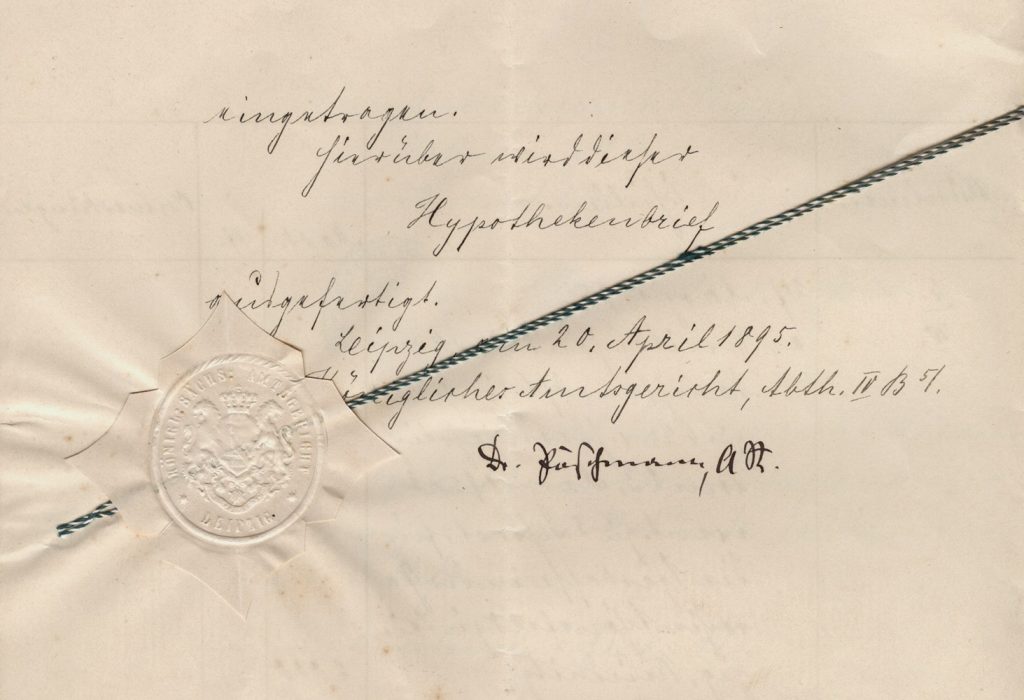 eingetragen.
Hierüber wird dieser
Hypothekenbrief
ausgefertigt.
Leipzig, am 20. April 1895.
Königliches Amtsgericht, Abth. IV B
Dr. Pöschmann, AR.
KÖNIGL. SÄCHS. AMTSGERICHT
LEIPZIG.